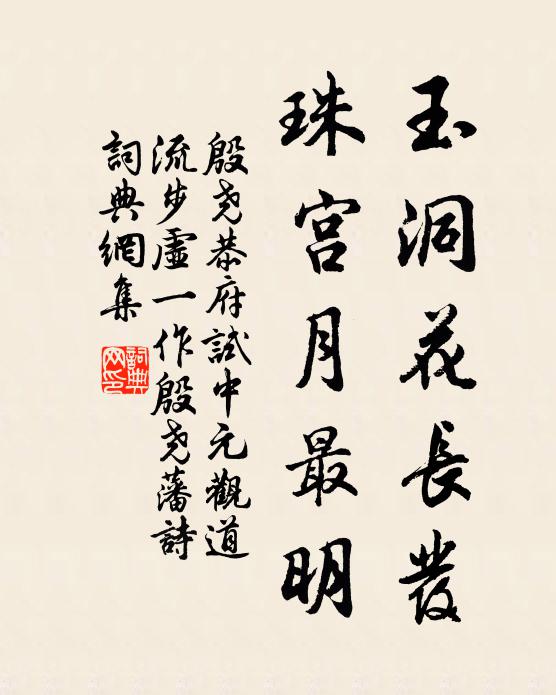 玉洞花長發
珠宮月最明
殷堯恭府試中元觀道
流步虛一作殷堯藩詩
詞典網集
詞典网印